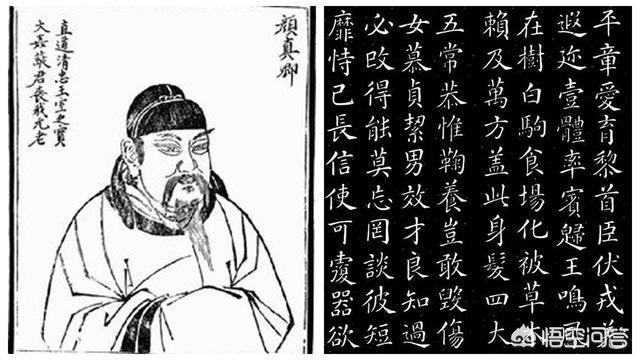 顏真卿
直道清忠王室之寶
大姦蔽君喪我元老
平章愛育黎首臣伏戎羌
遐迩壹體率賓歸王鳴鳳
在樹白駒食場化被草木
賴及萬方盖此身髮四大
五常恭惟鞠養豈敢毀傷
女慕貞絜男效才良知過
必改得能莫忘罔談彼短
靡恃己長信使可覆器欲
悟空问答